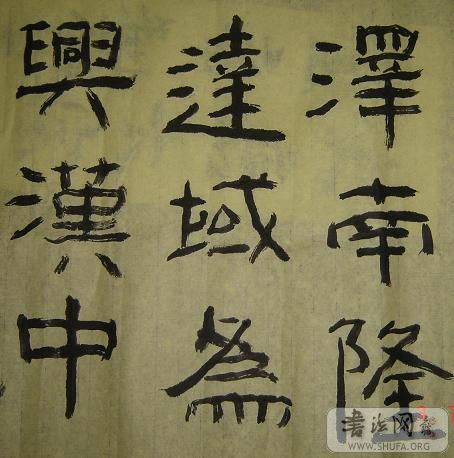 澤南隆
達域爲
興漢中
書法网
WWW.SHUFA.ORG